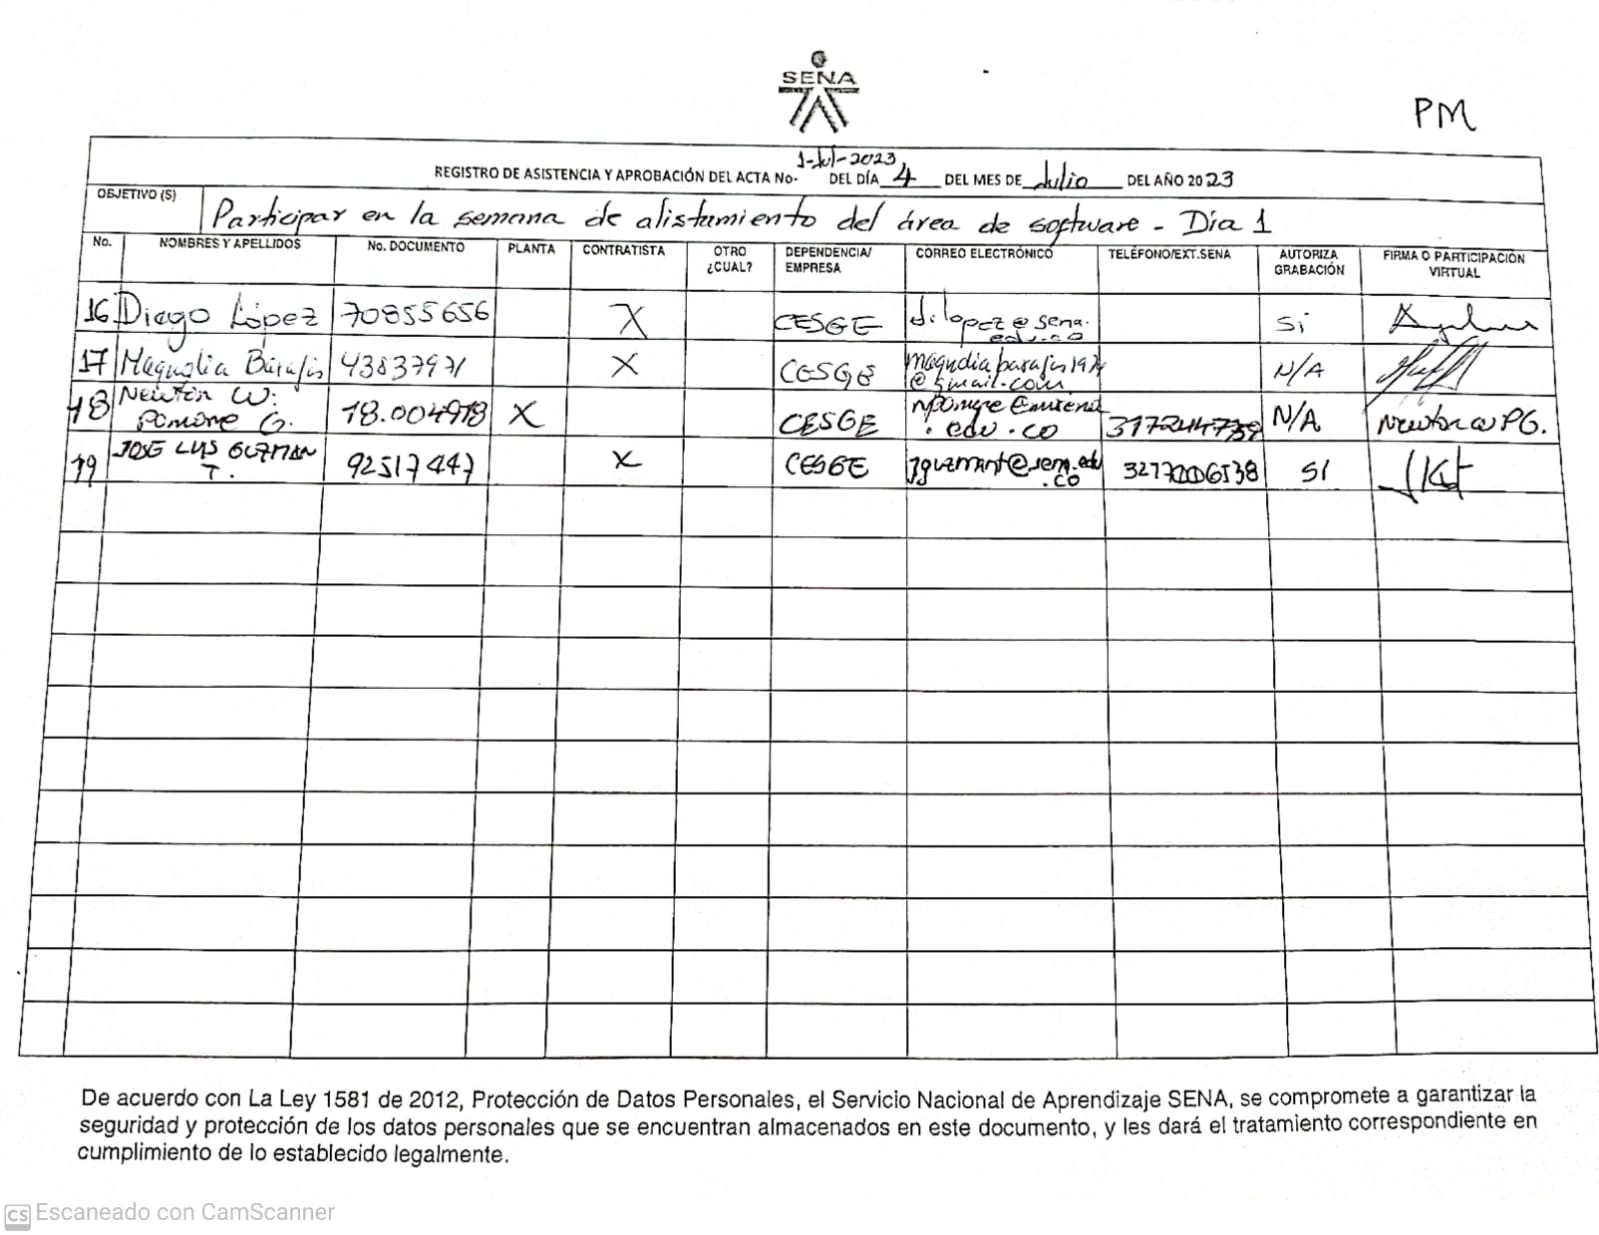 SENA
PM
1-Jul-2023
REGISTRO DE ASISTENCIA Y APROBACIÓN DEL ACTA No- DEL DÍA 4 DEL MES DE Julio DEL AÑO 2023
OBJETIVO (S) Participar en la semana de alistamiento del área de software - Día 1
No. NOMBRES Y APELLIDOS No. DOCUMENTO PLANTA CONTRATISTA OTRO ¿CUAL? DEPENDENCIA/ EMPRESA CORREO ELECTRÓNICO TELÉFONO/EXT.SENA AUTORIZA GRABACIÓN FIRMA O PARTICIPACIÓN VIRTUAL
16 Diego López 70855656 X CESGE dilopez@sena.edu.co Si
17 Magnolia Barajas 43837971 X CESGE magnoliabarajas1974@gmail.com N/A
18 Newton W. Pomare G. 18.004918 X CESGE .edu.co N/A Newton W PG.
19 JOSE LUIS GUZMAN T. 92517447 X CESGE jguzmant@sena.edu.co SI
De acuerdo con La Ley 1581 de 2012, Protección de Datos Personales, el Servicio Nacional de Aprendizaje SENA, se compromete a garantizar la
seguridad y protección de los datos personales que se encuentran almacenados en este documento, y les dará el tratamiento correspondiente en
cumplimiento de lo establecido legalmente.
CS Escaneado con CamScanner